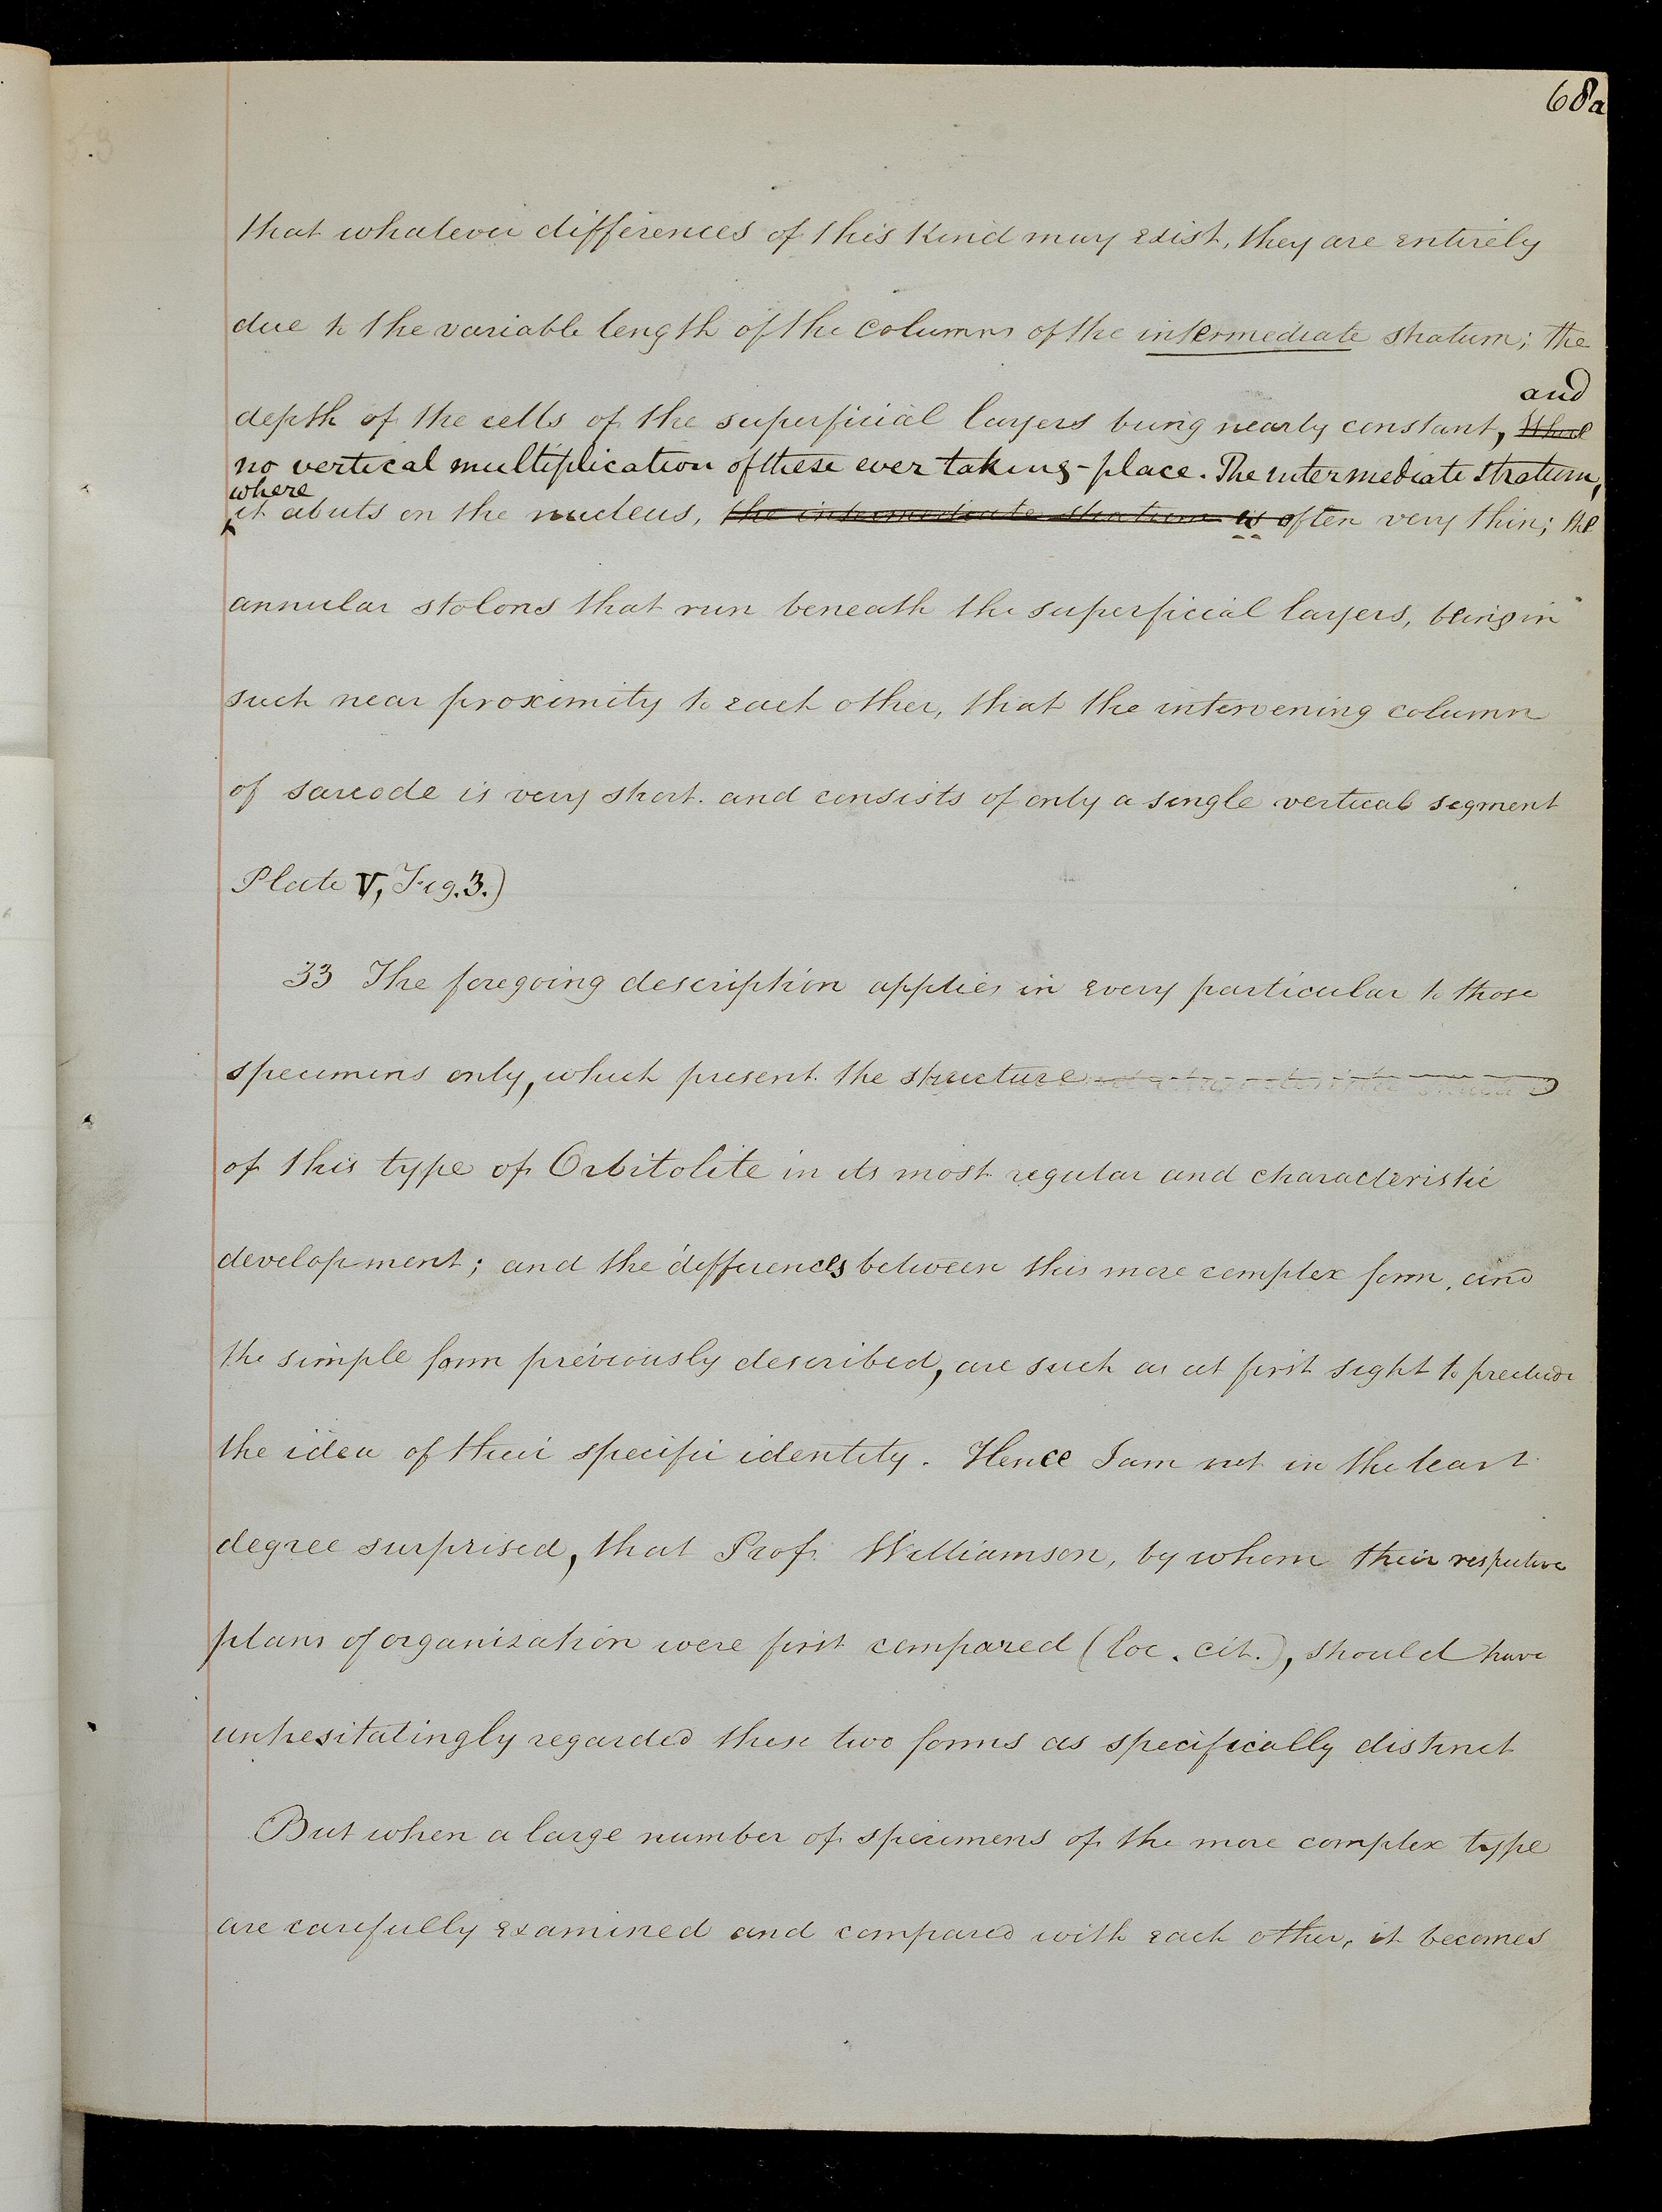 68a
that whatever differences of this kind may exist, they are entirely
due to the variable length of the columns of the intermediate stratum; the
and
depth of the cells of the superficial layers being nearly constant,
no vertical multiplication of these ever taking-place. The intermediate stratum,
where
it abuts on the nucleus, the intermediate stratum is often very thin; the
annular stolons that run beneath the superficial layers, being in
such near proximity to each other, that the intervening column
of sarcode is very short. and consists of only a single vertical segment
Plate V, Fig. 3.)
33 The foregoing description applies in every particular to those
specimens only, which present the structure
of this type of Orbitolite in its most regular and characteristic
development; and the differences between this more complex form, and
the simple form previously described, are such as at first sight to preclude
the idea of their specific identity. Hence I am not in the least
degree surprised, that Prof. Williamson, by whom their respective
plans of organization were first compared (loc. cit.), should have
unhesitatingly regarded these two forms as specifically distinct
But when a large number of specimens of the more complex type
are carefully examined and compared with each other, it becomes